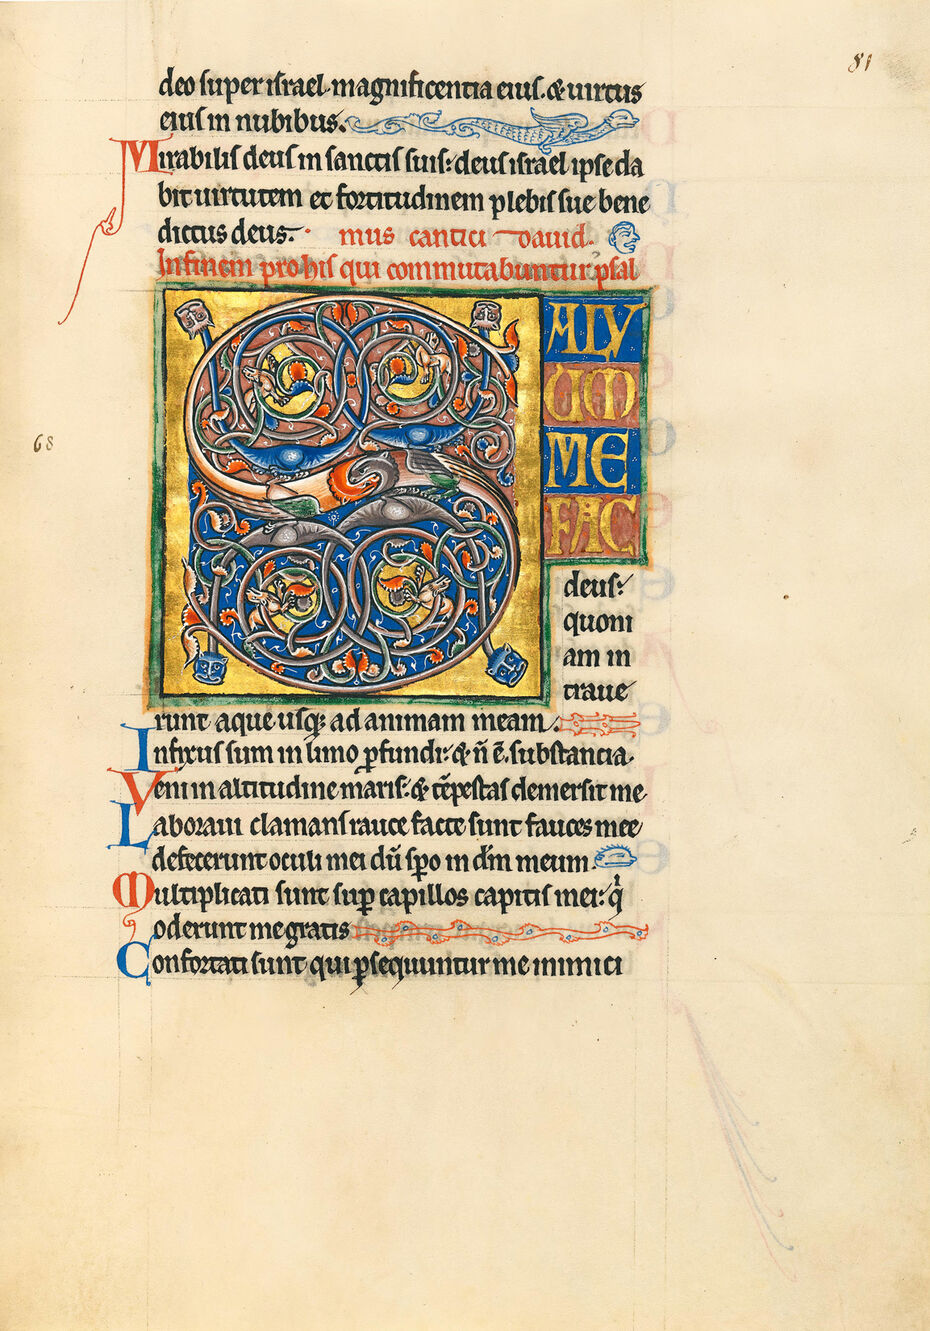 81
deo super israel magnificentia eius. & uirtus
eius in nubibus.
Mirabilis deus in sanctis suis: deus israel ipse da
bit uirtutem et fortitudinem plebis sue bene
dictus deus. mus cantici dauid.
Infinem pro his qui commutabuntur psal
SALV
UM
ME
FAC
deus:
quoni
am in
traue
runt aque usq; ad animam meam.
68
Infixus sum in limo pfundi: & n̄ ē. substancia.
Veni in altitudine maris: & tēpestas demersit me
Laboraui clamans rauce facte sunt fauces mee
defecerunt oculi mei dū spo in dm̄ meum
Multiplicati sunt sup capillos capitis mei: q̇
oderunt me gratis
Confortati sunt qui psequuntur me inimici